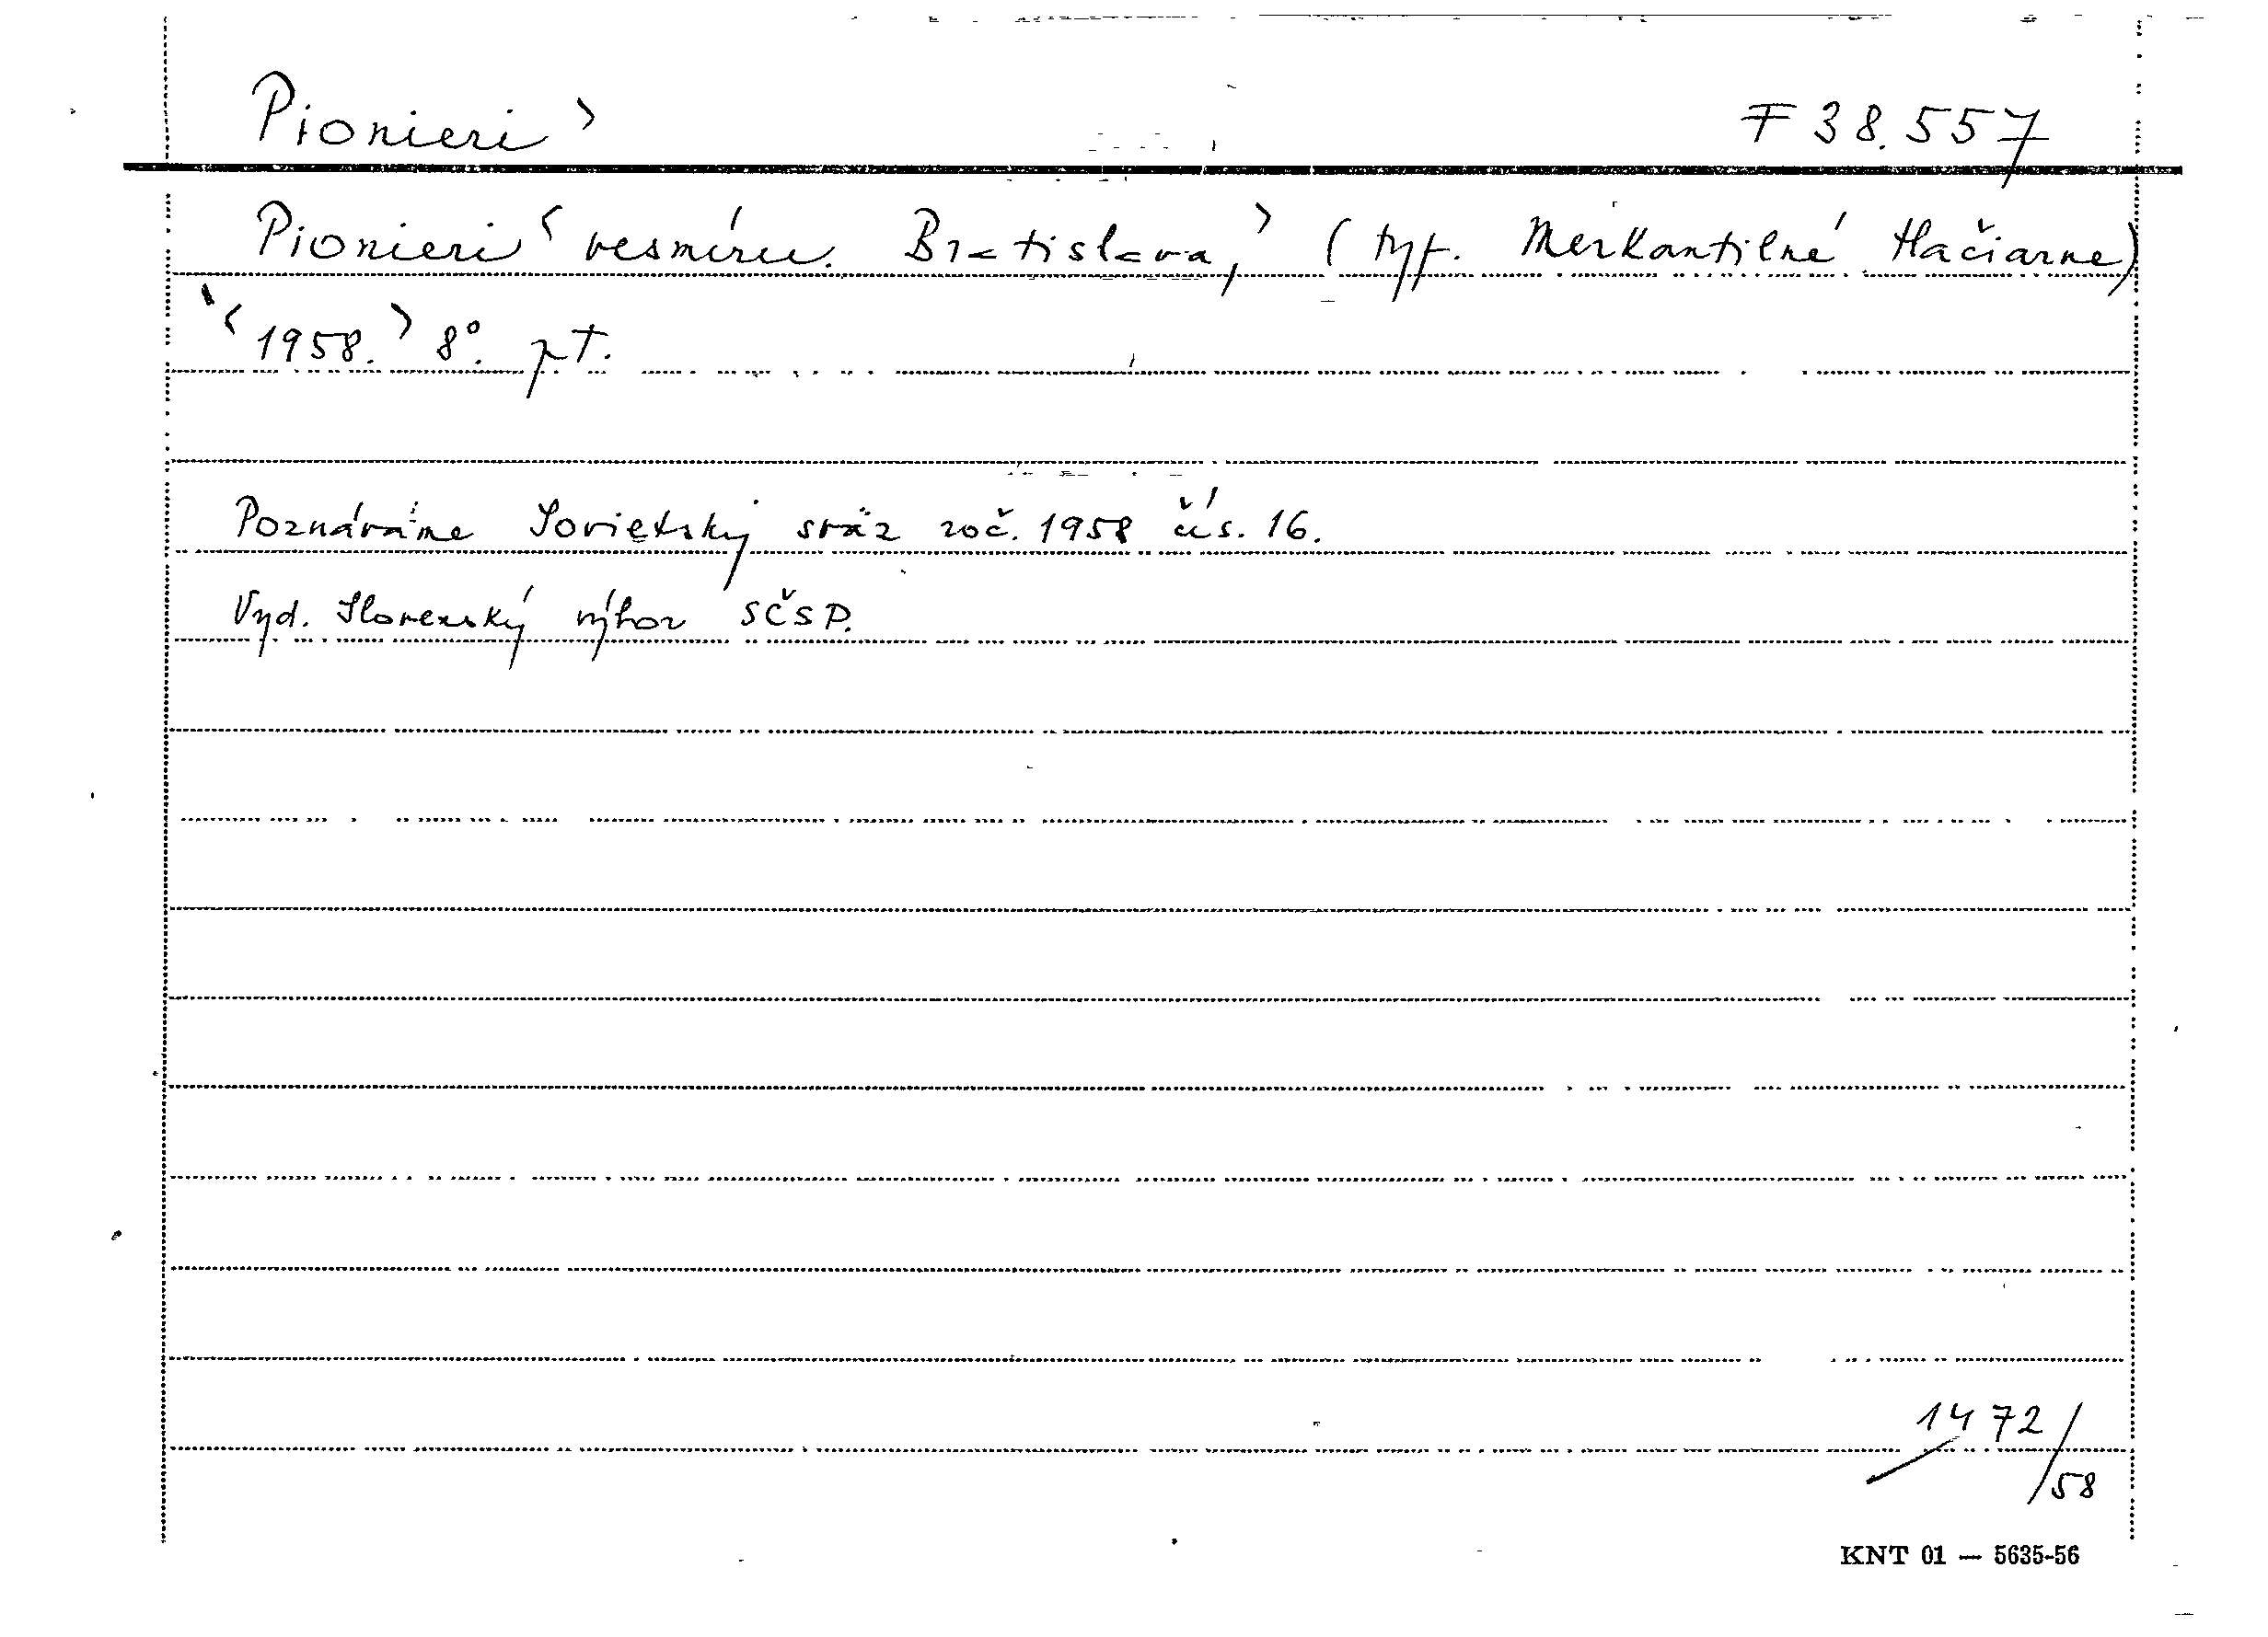 Pionieri > F 38.557
Pionieri < vesmíru. Bratislava, > (typ. Merkantilné tlačiarne)
< 1958. > 8°. pT.
Poznávame Sovietský sväz roč. 1958 čís. 16.
Vyd. Slovenský výbor SČSP.
1472/
58
KNT 01 — 5635-56